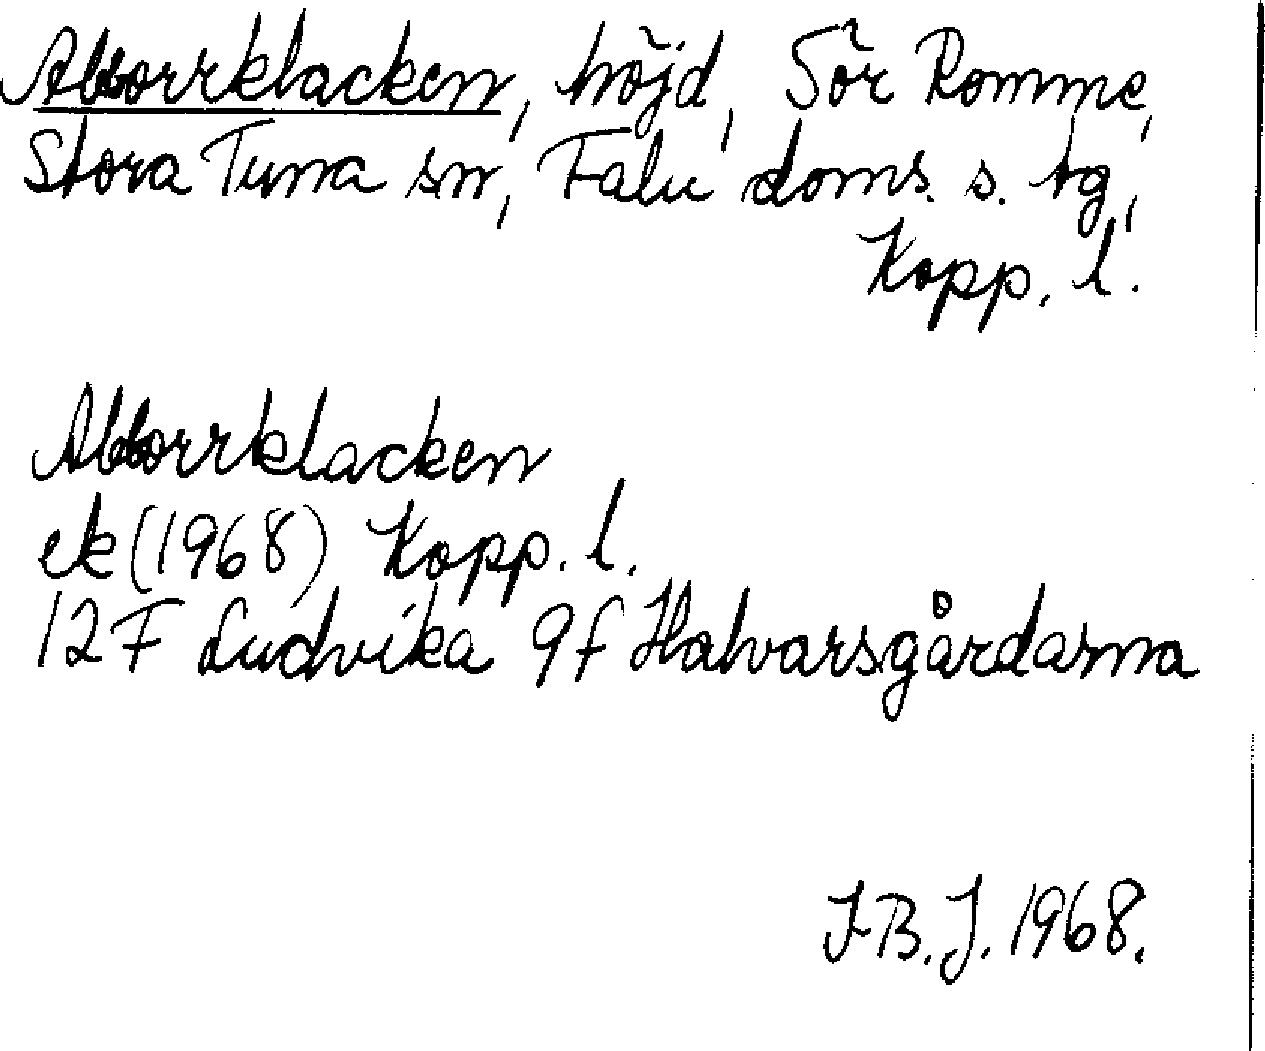 Abborrklacken, höjd, Sör Romme,
Stora Tuna sn, Falu doms. s. tg,
Kopp. l.
Abborrklacken
ek (1968) Kopp. l.
12F Ludvika 9f Halvarsgårdarna
I.B.J. 1968.